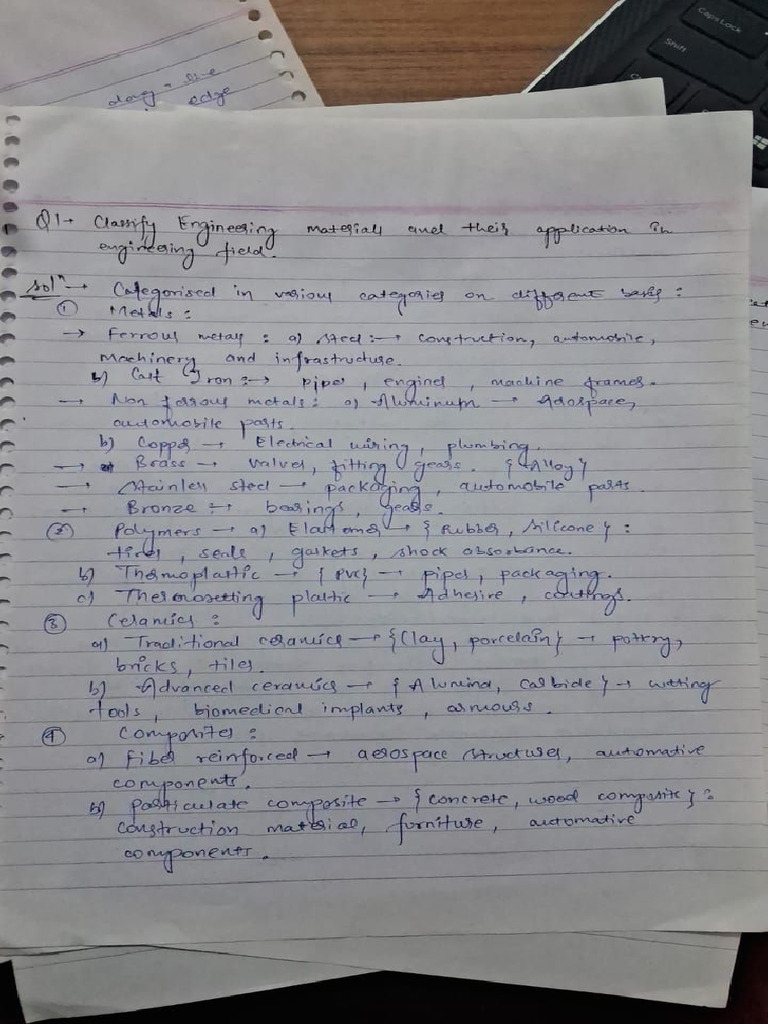 along
edge
Caps Lock
Shift
Q1→ Classify Engineering materials and their application in
engineering field.
Solⁿ→ Categorised in various categories on different basis :
① Metals :
→ Ferrous metals : a) Steel :→ construction, automobile,
Machinery and infrastructure.
b) Cast Iron :→ pipes, engines, machine frames.
→ Non ferrous metals : a) Aluminum → Aerospace,
automobile parts.
b) Copper → Electrical wiring, plumbing.
→ Brass → valves, fitting gears. {Alloy}
→ Stainless steel → packaging, automobile parts.
→ Bronze :→ bearings, gears.
② Polymers → a) Elastomers → {Rubber, Silicone} :
tires, seals, gaskets, shock absorbance.
b) Thermoplastic → {PVC} → pipes, packaging.
c) Thermosetting plastic → Adhesive, coatings.
③ Ceramics :
a) Traditional ceramics → {Clay, porcelain} → pottry,
bricks, tiles.
b) Advanced ceramics → {Alumina, Carbide} → cutting
tools, biomedical implants, armours.
④ Composites :
a) Fiber reinforced → aerospace structures, automative
components.
b) Particulate composite → {concrete, wood composite} :
construction material, furniture, automative
components.